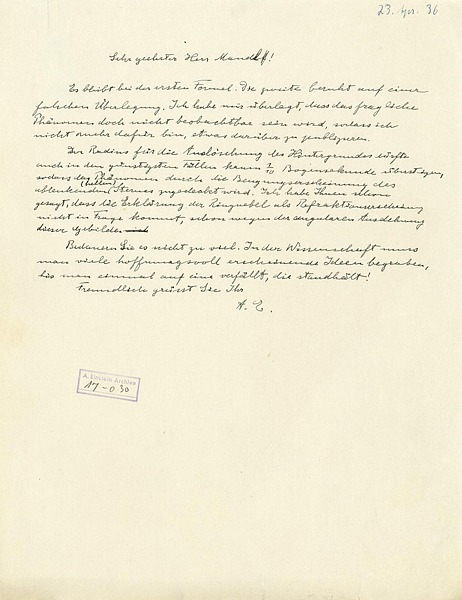 23. Apr. 36
Sehr geehrter Herr Mandl!
Es bleibt bei der ersten Formel. Die zweite beruht auf einer
falschen Überlegung. Ich habe mir überlegt, dass das fragliche
Phänomen doch nicht beobachtbar sein wird, sodass ich
nicht mehr dafür bin, etwas darüber zu publizieren.
Der Radius für die Auslöschung des Hintergrundes dürfte
auch in den günstigsten Fällen kaum 1/10 Bogensekunde übersteigen,
sodass das Phänomen durch die Beugungserscheinung des
(hellen)
ablenkenden Sternes zugedeckt wird. Ich habe Ihnen schon
gesagt, dass die Erklärung der Ringnebel als Refraktionserscheinung
nicht in Frage kommt, schon wegen der angularen Ausdehnung
dieser Gebilde
Bedauern Sie es nicht zu viel. In der Wissenschaft muss
man viele hoffnungsvoll erscheinende Ideen begraben,
bis man einmal auf eine verfällt, die standhält!
Freundlich grüsst Sie Ihr
A. E.
A. Einstein Archive
17-030